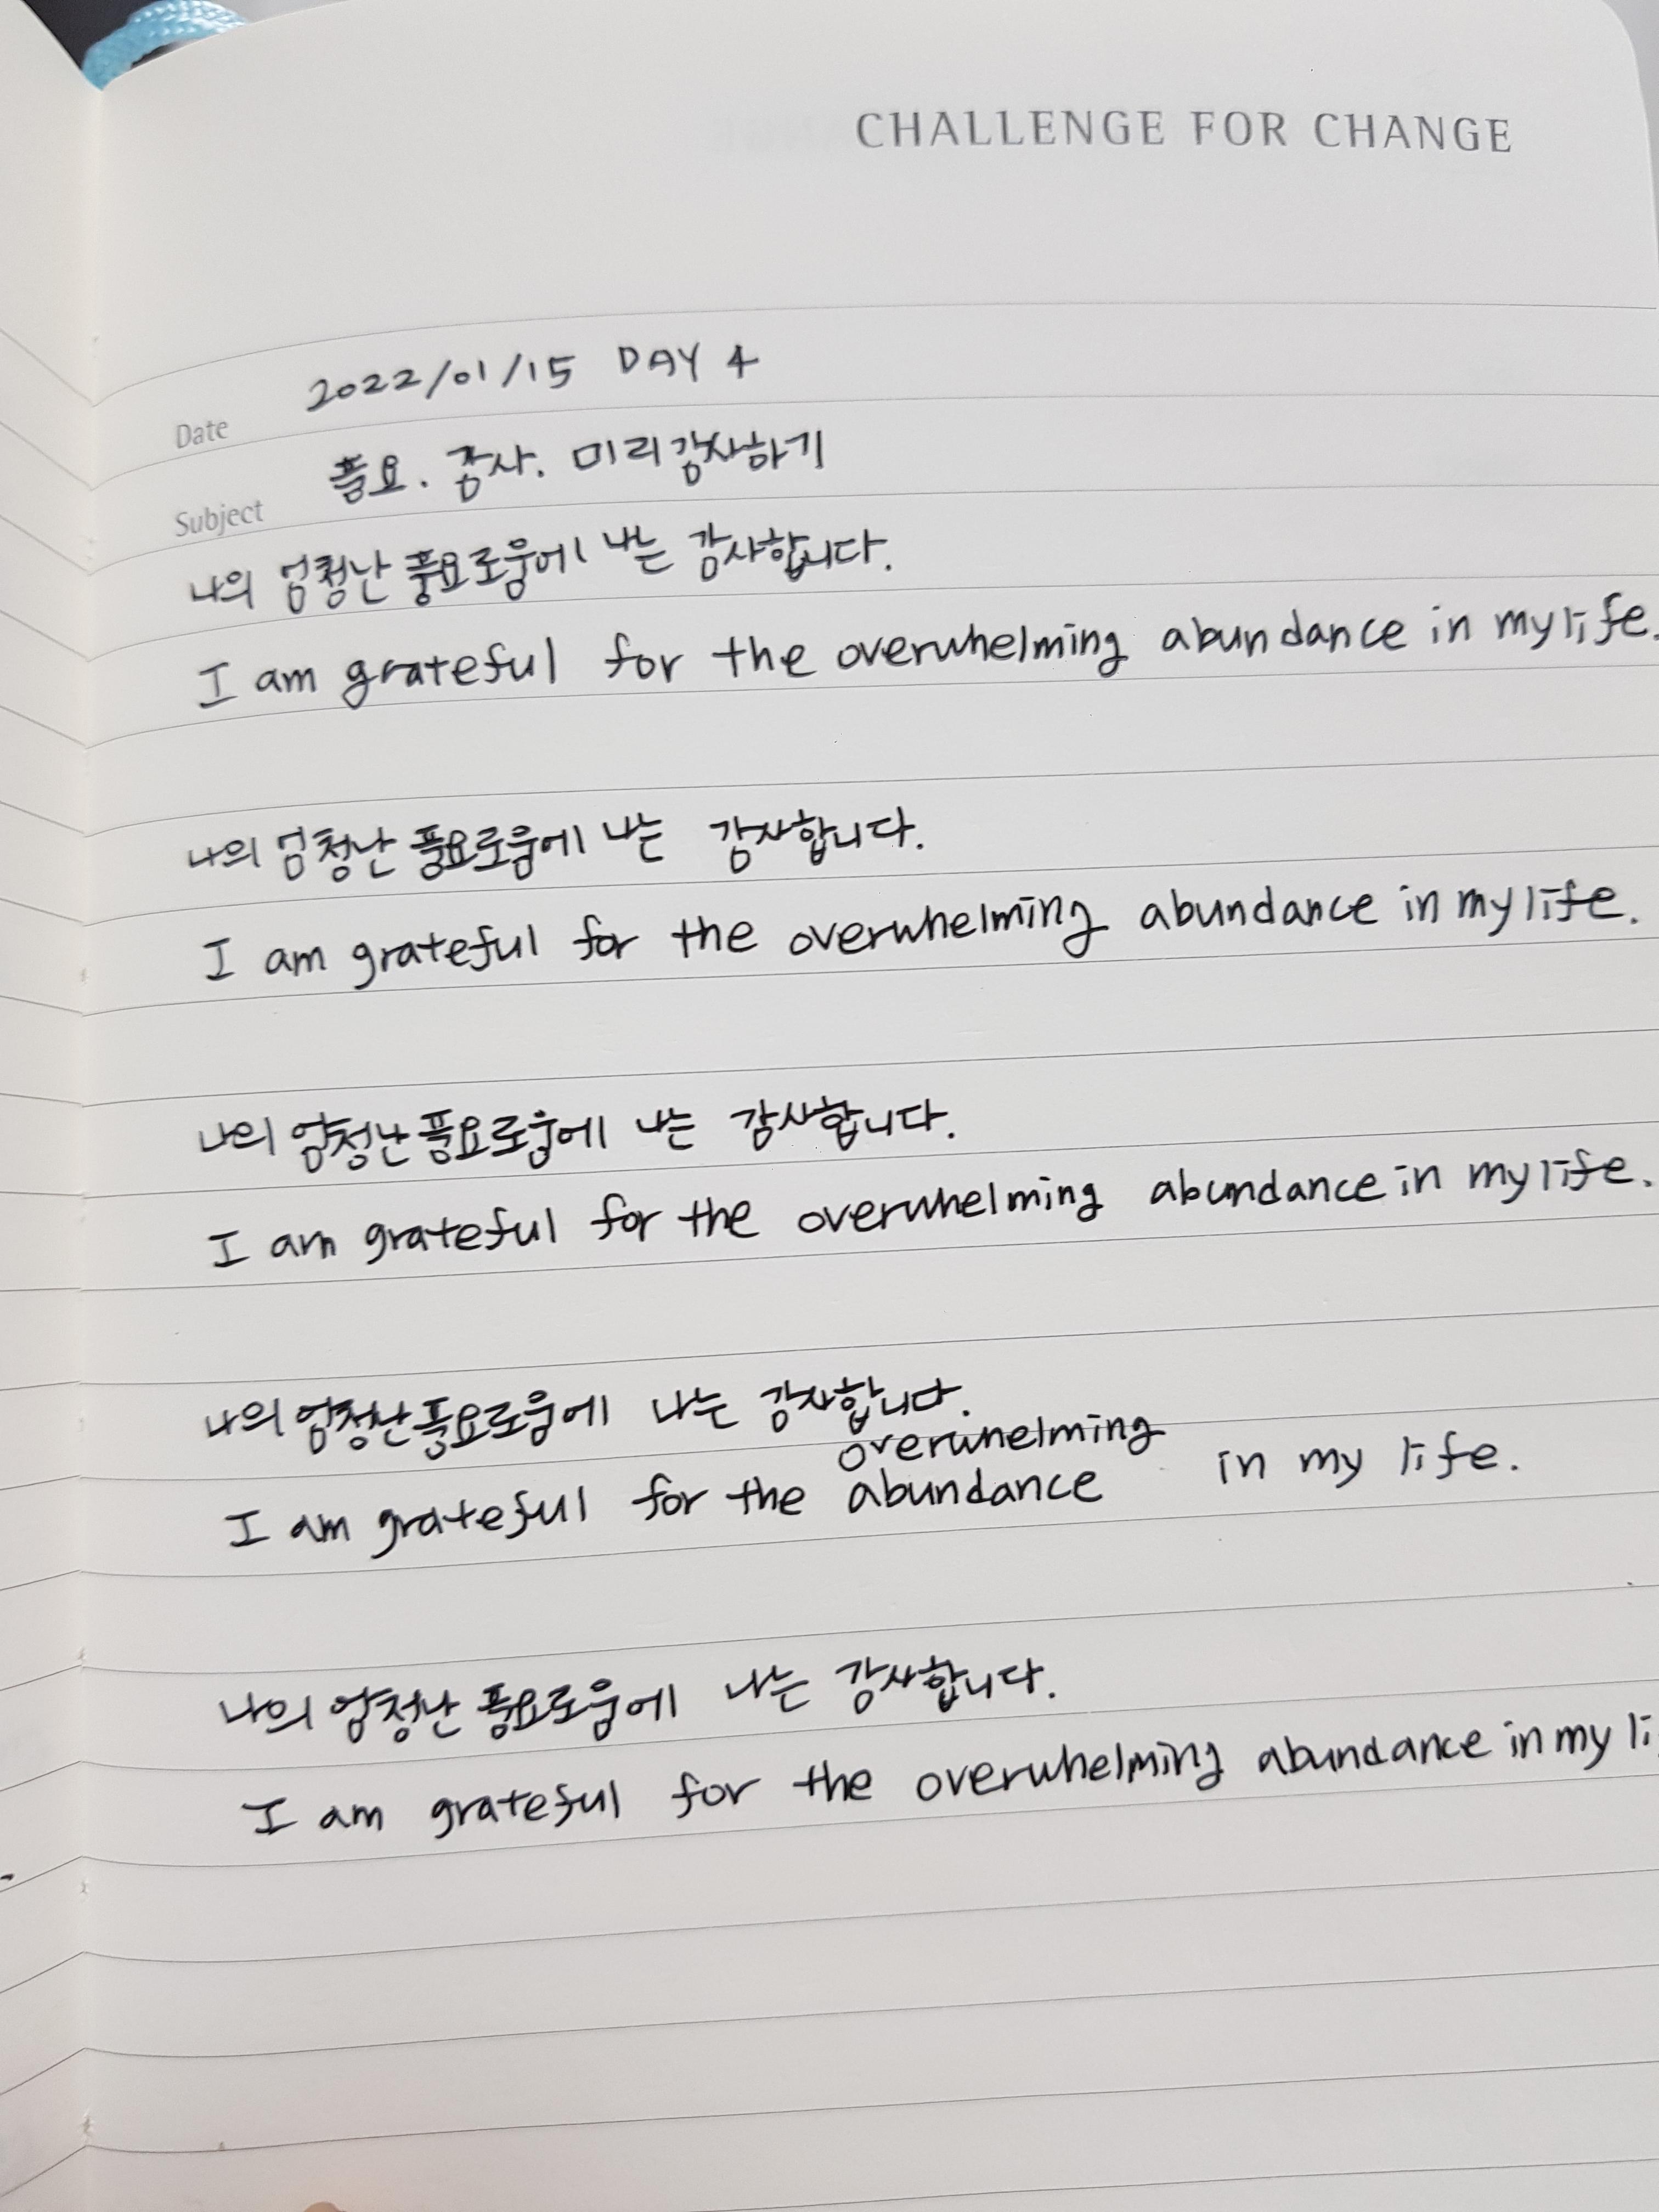 CHALLENGE FOR CHANGE
Date 2022/01/15 DAY 4
Subject 풍요. 감사. 미리감사하기
나의 엄청난 풍요로움에 나는 감사합니다.
I am grateful for the overwhelming abundance in my life.
나의 엄청난 풍요로움에 나는 감사합니다.
I am grateful for the overwhelming abundance in my life.
나의 엄청난 풍요로움에 나는 감사합니다.
I am grateful for the overwhelming abundance in my life.
나의 엄청난 풍요로움에 나는 감사합니다.
overwhelming
I am grateful for the abundance in my life.
나의 엄청난 풍요로움에 나는 감사합니다.
I am grateful for the overwhelming abundance in my li